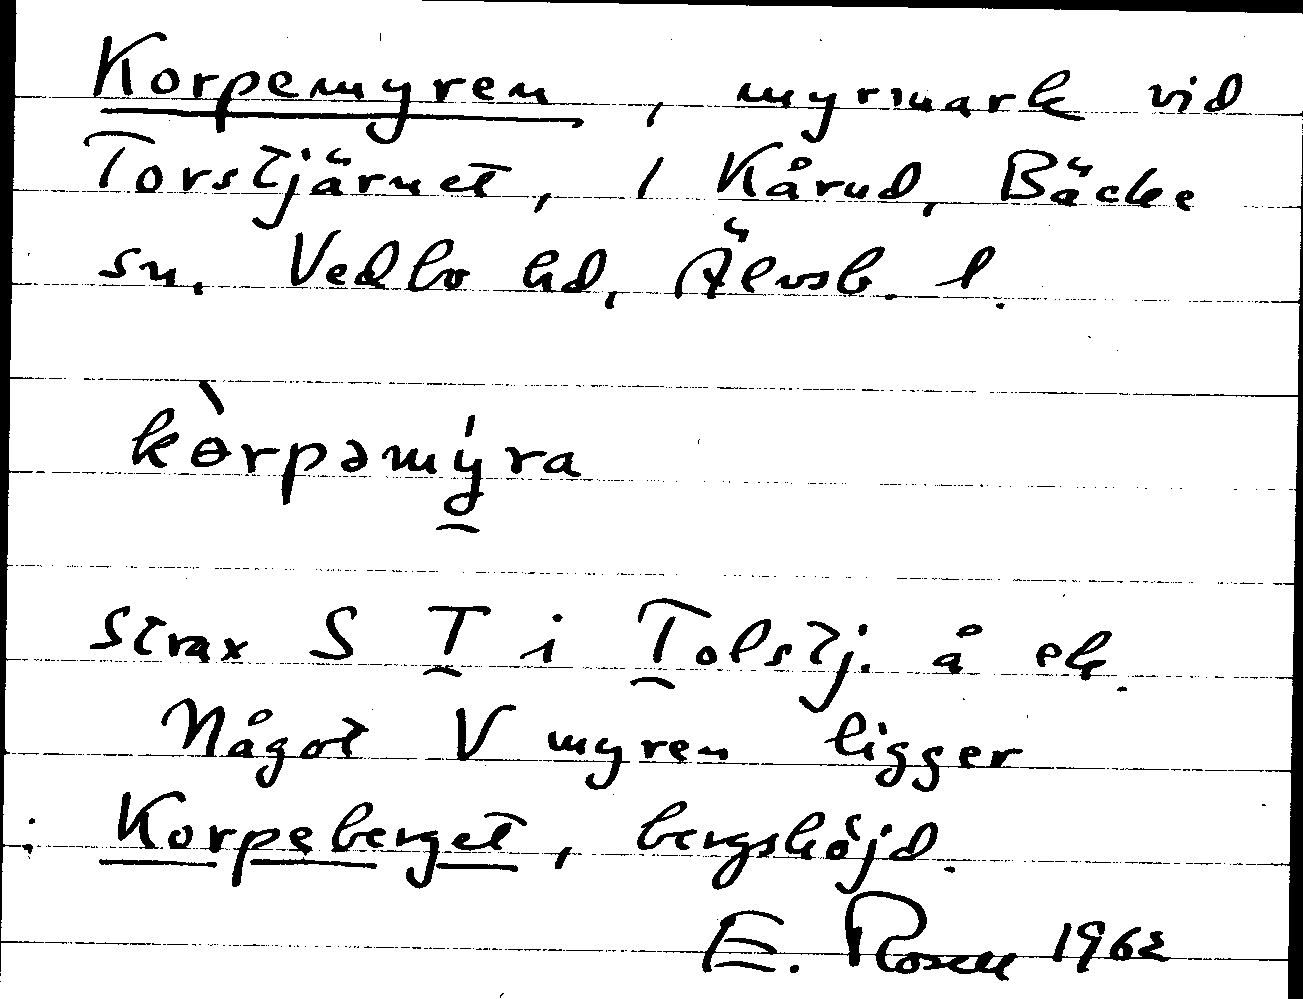 Korpemyren, myrmark vid
Torstjärnet, 1 Kårud, Bäcke
sn. Vedbo hd, Älvsb. l.
kɵ̀rpəmý̱ra
strax S T i Tolstj. å ek.
Något V myren ligger
Korpeberget, bergshöjd.
E. Rosell 1962